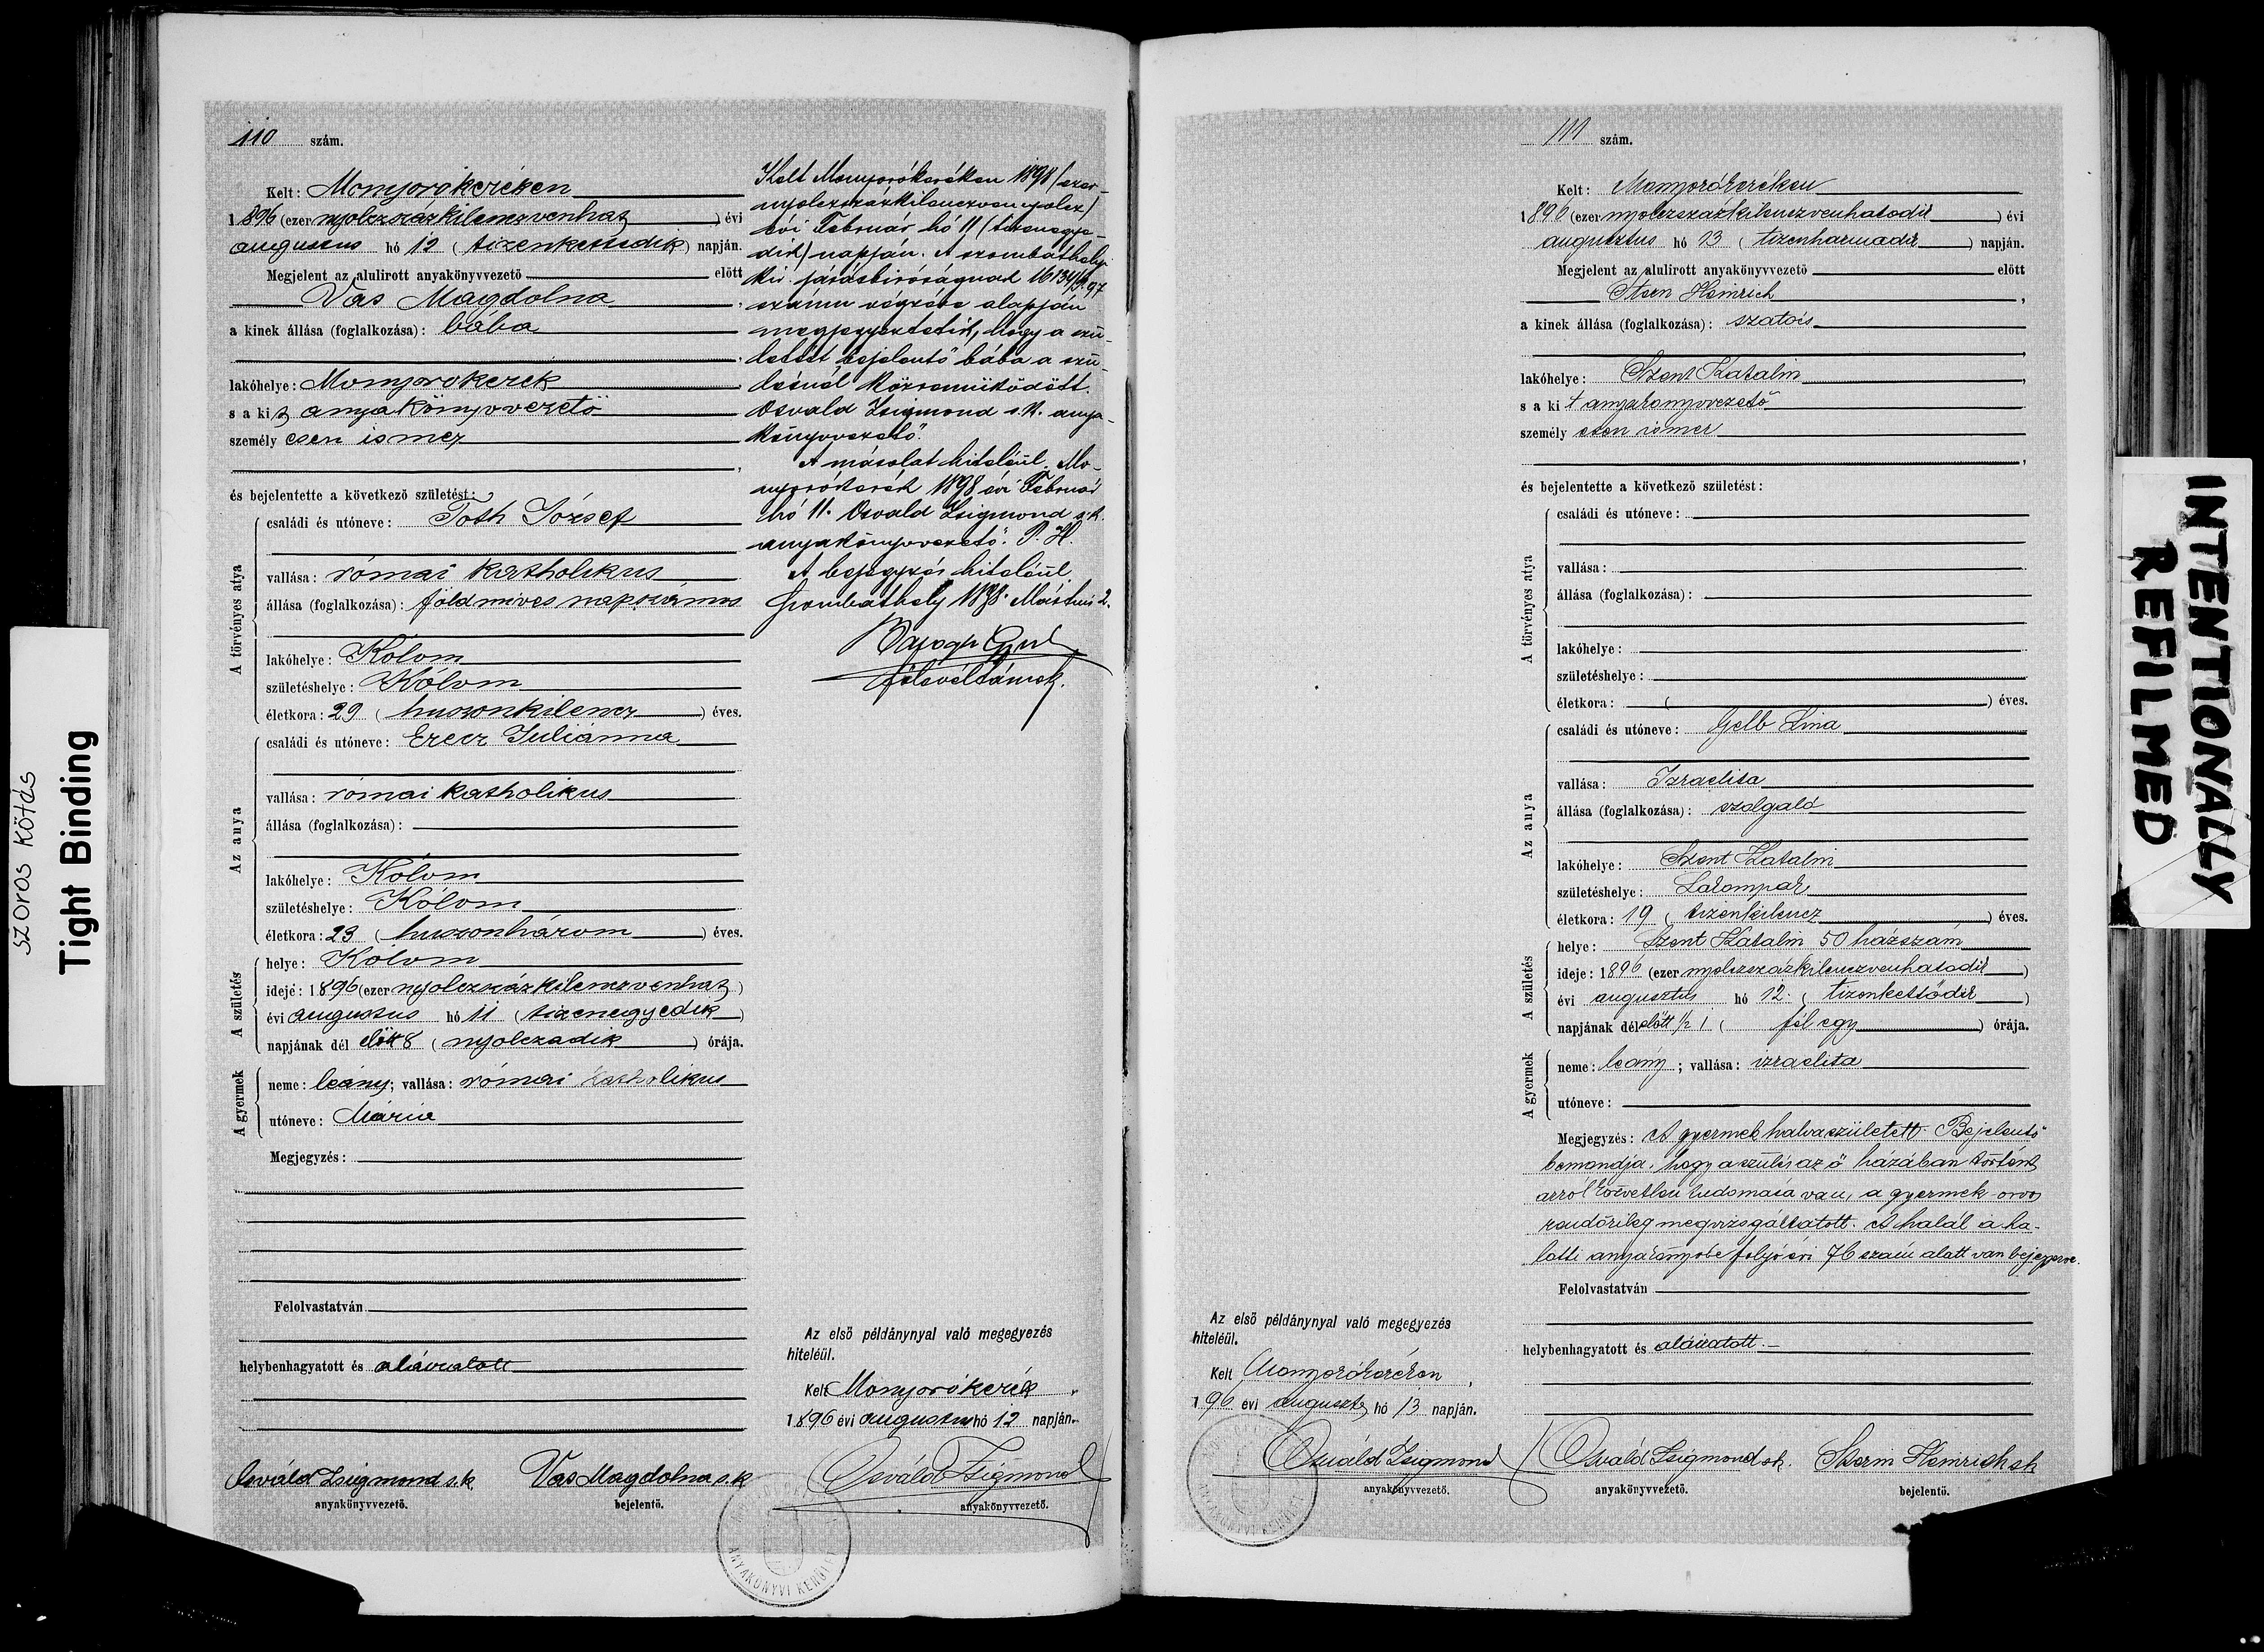 110 szám.
Kelt: Monyorokeréken
1896 (ezer nyolczszázkilenczvenhat) évi
augusztus hó 12 (tizenkettedik) napján.
Megjelent az alulirott anyakönyvvezető előtt
Vas Magdolna,
a kinek állása (foglalkozása): bába
lakóhelye: Monyorokerék
s a kit anyakönyvvezető
személyesen ismer,
és bejelentette a következő születést:
A törvényes atya
családi és utóneve: Toth József
vallása: római katholikus
állása (foglalkozása): földmives napszámos
lakóhelye: Kólom
születéshelye: Kólom
életkora: 29 (huszonkilencz) éves.
Az anya
családi és utóneve: Erecz Juliánna
vallása: római katholikus
állása (foglalkozása):
lakóhelye: Kólom
születéshelye: Kólom
életkora: 23 (huszonhárom) éves.
A születés
helye: Kólom
ideje: 1896 (ezer nyolczszázkilenczvenhat)
évi augusztus hó 11 (tizenegyedik)
napjának dél előtt 8 (nyolczadik) órája.
A gyermek
neme: leány; vallása: római katholikus
utóneve: Mária
Megjegyzés:
Felolvastatván
helybenhagyatott és aláiratott
Osváld Zsigmond s.k. Vas Magdolna s.k.
anyakönyvvezető. bejelentő.
Kelt Monyorókeréken 1898 (ezer-
nyolczszázkilenczvennyolcz)
évi Február hó 11 (tizenegye-
dik) napján. A szombathelyi
kir. járásbiróságnak 16134/P.97
számu végzése alapján
megjegyeztetik, hogy a szü-
letést bejelentő bába a szü-
lésnél közremüködött.
Osvald Zsigmond s.k. anya-
könyvvezető.
A másolat hiteléül. Mo-
nyorókerék 1898 évi Február
hó 11. Osvald Zsigmond s.k.
anyakönyvvezető. P. H.
A bejegyzés hiteléül.
Szombathely 1898. Március 2.
Az első példánynyal való megegyezés
hiteléül.
Kelt Monyorókerék
1896 évi augusztus hó 12 napján.
Osváld Zsigmond
anyakönyvvezető.
ANYAKÖNYVI KERÜLET
111 szám.
Kelt: Monyorókeréken
1896 (ezer nyolczszázkilenczvenhatodik) évi
augusztus hó 13 (tizenharmadik) napján.
Megjelent az alulirott anyakönyvvezető előtt
Stern Heinrich,
a kinek állása (foglalkozása): szatócs
lakóhelye: Szent Katalin,
s a kit anyakönyvvezető
személyesen ismer,
és bejelentette a következő születést:
A törvényes atya
családi és utóneve:
vallása:
állása (foglalkozása):
lakóhelye:
születéshelye:
életkora: ( ) éves.
Az anya
családi és utóneve: Gelb Lina
vallása: Izraelita
állása (foglalkozása): szolgaló
lakóhelye: Szent Katalin
születéshelye: Lakompak
életkora: 19 (tizenkilencz) éves.
A születés
helye: Szent Katalin 50 házszám
ideje: 1896 (ezer nyolczszázkilenczvenhatodik)
évi augusztus hó 12. (tizenkettödik)
napjának dél előtt ½ 1 (fél egy) órája.
A gyermek
neme: leány; vallása: izraelita
utóneve:
Megjegyzés: A gyermek halva született. Bejelentő
bemondja, hogy a szülés az ő házában történt
arról közvetlen tudomása van, a gyermek orvos
rendőrileg megvizsgáltatott. A halál a ha-
lotti anyakönyvbe folyó évi 76 szám alatt van bejegyezve.
Felolvastatván
helybenhagyatott és aláiratott.
Az első példánynyal való megegyezés
hiteléül.
Kelt Monyorókeréken,
196 évi auguszt hó 13 napján.
Osváld Zsigmond Osváld Zsigmond sk. Stern Heinrich sk
anyakönyvvezető. anyakönyvvezető. bejelentő.
ANYAKÖNYVI KERÜLET
szoros kötés
Tight Binding
INTENTIONALLY
REFILMED